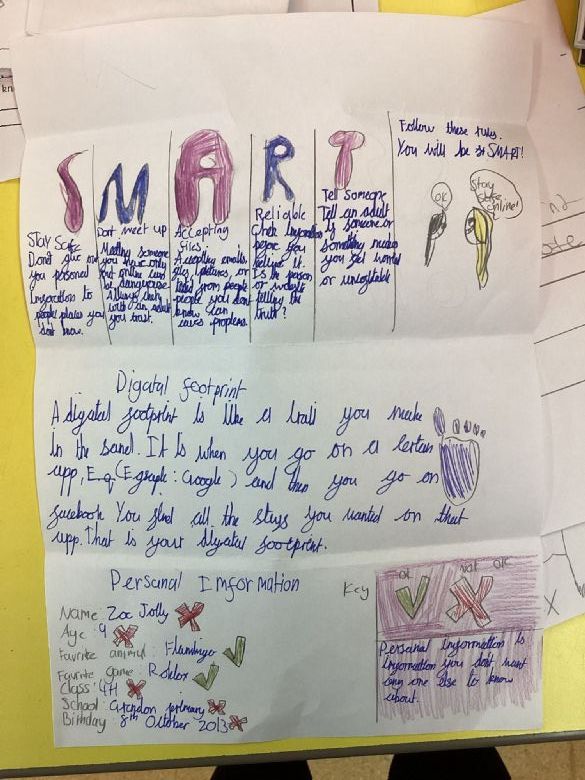 S M A R T
Stay Safe
Don't give out
you personal
Imforation to
people/places you
don't know.
Dont meet up
Meeting someone
you have only
online can
be dangerous.
Always check
with an adult
you trust.
Accepting
files:
Accepting emails,
files, pictures, or
texts from people
people you don't
know can
cause problems.
Reliable
Check Imforation
before you
believe it.
Is the person
or website
telling the
truth?
Tell Someone
Tell an adult
if someone or
something makes
you feel worried
or
Follow these rules.
You will be SMART!
OK
Stay
safe
online!
Digatal footprint
A digatal footprint is like a trail you make
In the sand. It Is when you go on a certain
app, E.g (E.g : Google) and then you go on
facebook You find all the stuffs you wanted on that
app. That is your digatal footprint.
Personal Imformation
Name: Zoe Jolly
Age: 9
Favrite animal: Flamingo
Favrite game: Roblox
Class: 4H
School: primary
Birthday: 8th October 2013
Key
OK
Not OK
Personal information Is
Information you dont want
any one else to know
about.